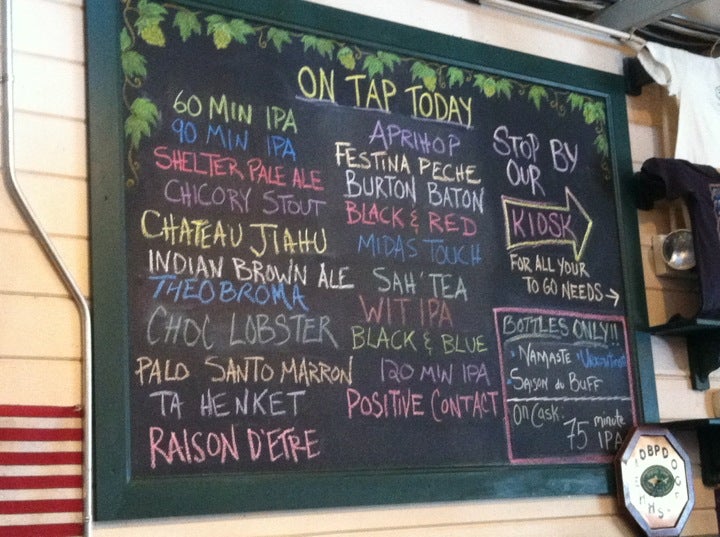 ON TAP TODAY
60 MIN IPA
90 MIN IPA
SHELTER PALE ALE
CHICORY STOUT
CHATEAU JIAHU
INDIAN BROWN ALE
THEOBROMA
CHOC LOBSTER
PALO SANTO MARRON
TA HENKET
RAISON D'ETRE
APRIHOP
FESTINA PECHE
BURTON BATON
BLACK & RED
MIDAS TOUCH
SAH'TEA
WIT IPA
BLACK & BLUE
120 MIN IPA
POSITIVE CONTACT
STOP BY
OUR
KIOSK
FOR ALL YOUR
TO GO NEEDS →
BOTTLES ONLY!!
NAMASTE
SAISON DU BUFF
ON CASK:
75 minute
IPA